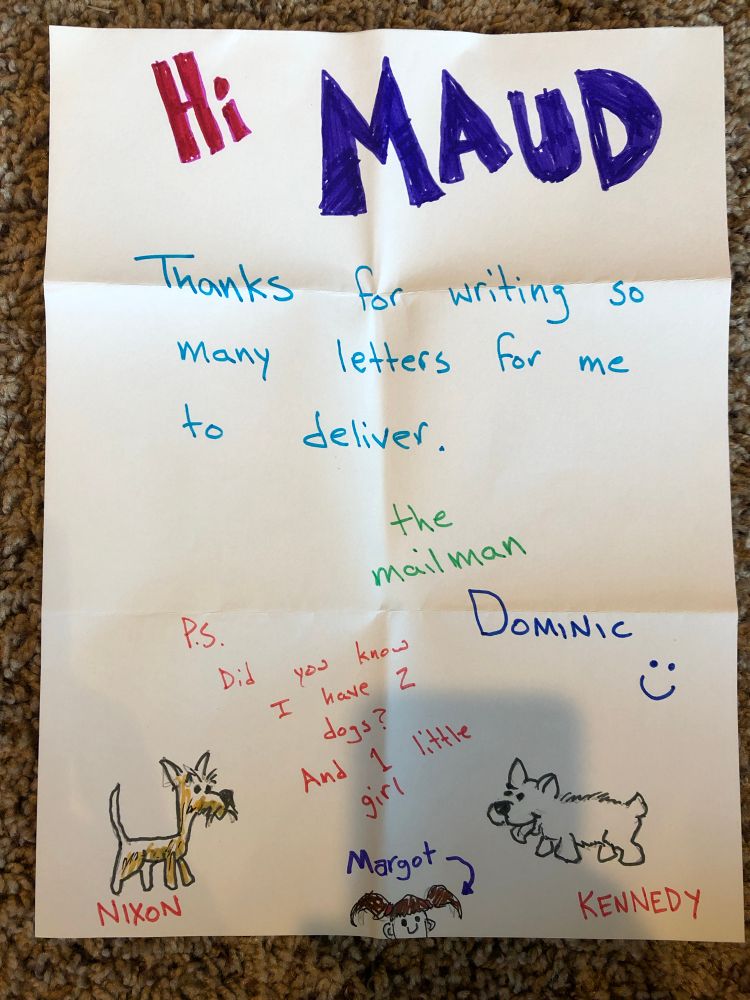 Hi MAUD
Thanks for writing so
many letters for me
to deliver.
the
mailman
DOMINIC
P.S.
Did you know
I have 2
dogs?
And 1 little
girl
Margot
NIXON
KENNEDY